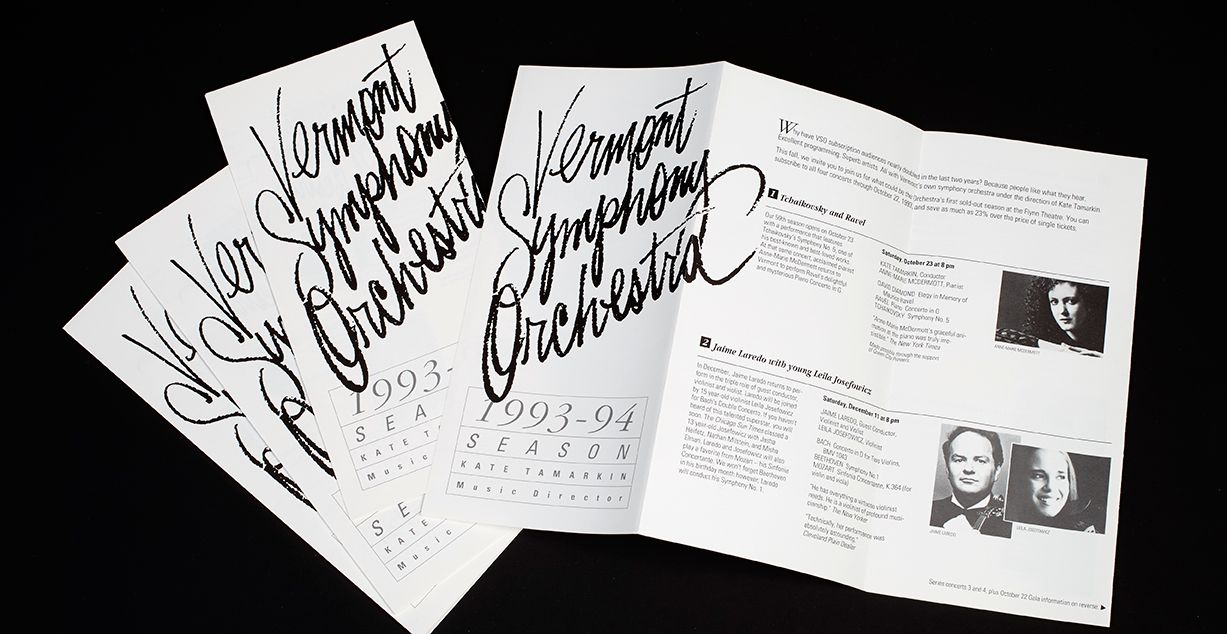 Vermont
Symphony
Orchestra
1993-94
SEASON
KATE TAMARKIN
Music Director
Vermont
Symphony
Orchestra
1993-
SEA
KATE TA
Music
Ver
Sy
SE
KATE
Music
Why have VSO subscription audiences nearly doubled in the last two years? Because people like what they hear.
Excellent programming. Superb artists. All with Vermont's own symphony orchestra under the direction of Kate Tamarkin.
This fall, we invite you to join us for what could be the Orchestra's first sold-out season at the Flynn Theatre. You can
subscribe to all four concerts through October 22, 1993, and save as much as 23% over the price of single tickets.
1 Tchaikovsky and Ravel
Our 59th season opens on October 23
with a performance that features
Tchaikovsky's Symphony No. 5, one of
his best-known and best-loved works.
At that same concert, acclaimed pianist
Anne-Marie McDermott returns to
Vermont to perform Ravel's delightful
and mysterious Piano Concerto in G.
Saturday, October 23 at 8 pm
KATE TAMARKIN, Conductor
ANNE-MARIE MCDERMOTT, Pianist
DAVID DIAMOND Elegy in Memory of
Maurice Ravel
RAVEL Piano Concerto in G
TCHAIKOVSKY Symphony No. 5
"Anne-Marie McDermott's graceful ani-
mation at the piano was truly irre-
sistible." The New York Times
Made possible through the support
of Green City
ANNE-MARIE MCDERMOTT
2 Jaime Laredo with young Leila Josefowicz
In December, Jaime Laredo returns to per-
form in the triple role of guest conductor,
violinist and violist. Laredo will be joined
by 15 year-old violinist Leila Josefowicz
for Bach's Double Concerto. If you haven't
heard of this talented superstar, you will
soon. The Chicago Sun Times classed a
13 year-old Josefowicz with Jascha
Heifetz, Nathan Milstein, and Mischa
Elman. Laredo and Josefowicz will also
play a favorite from Mozart – his Sinfonie
Concertante. We won't forget Beethoven
in his birthday month however, Laredo
will conduct his Symphony No. 1.
Saturday, December 11 at 8 pm
JAIME LAREDO, Guest Conductor,
Violinist and Violist
LEILA JOSEFOWICZ, Violinist
BACH Concerto in D for Two Violins,
BMV 1043
BEETHOVEN Symphony No.1
MOZART Sinfonia Concertante, K.364 (for
violin and viola)
"He has everything a virtuoso violinist
needs. He is a violinist of profound musi-
cianship." The New Yorker
"Technically, her performance was
absolutely astounding."
Cleveland Plain Dealer
JAIME LAREDO
LEILA JOSEFOWICZ
Series concerts 3 and 4, plus October 22 Gala information on reverse. ▶